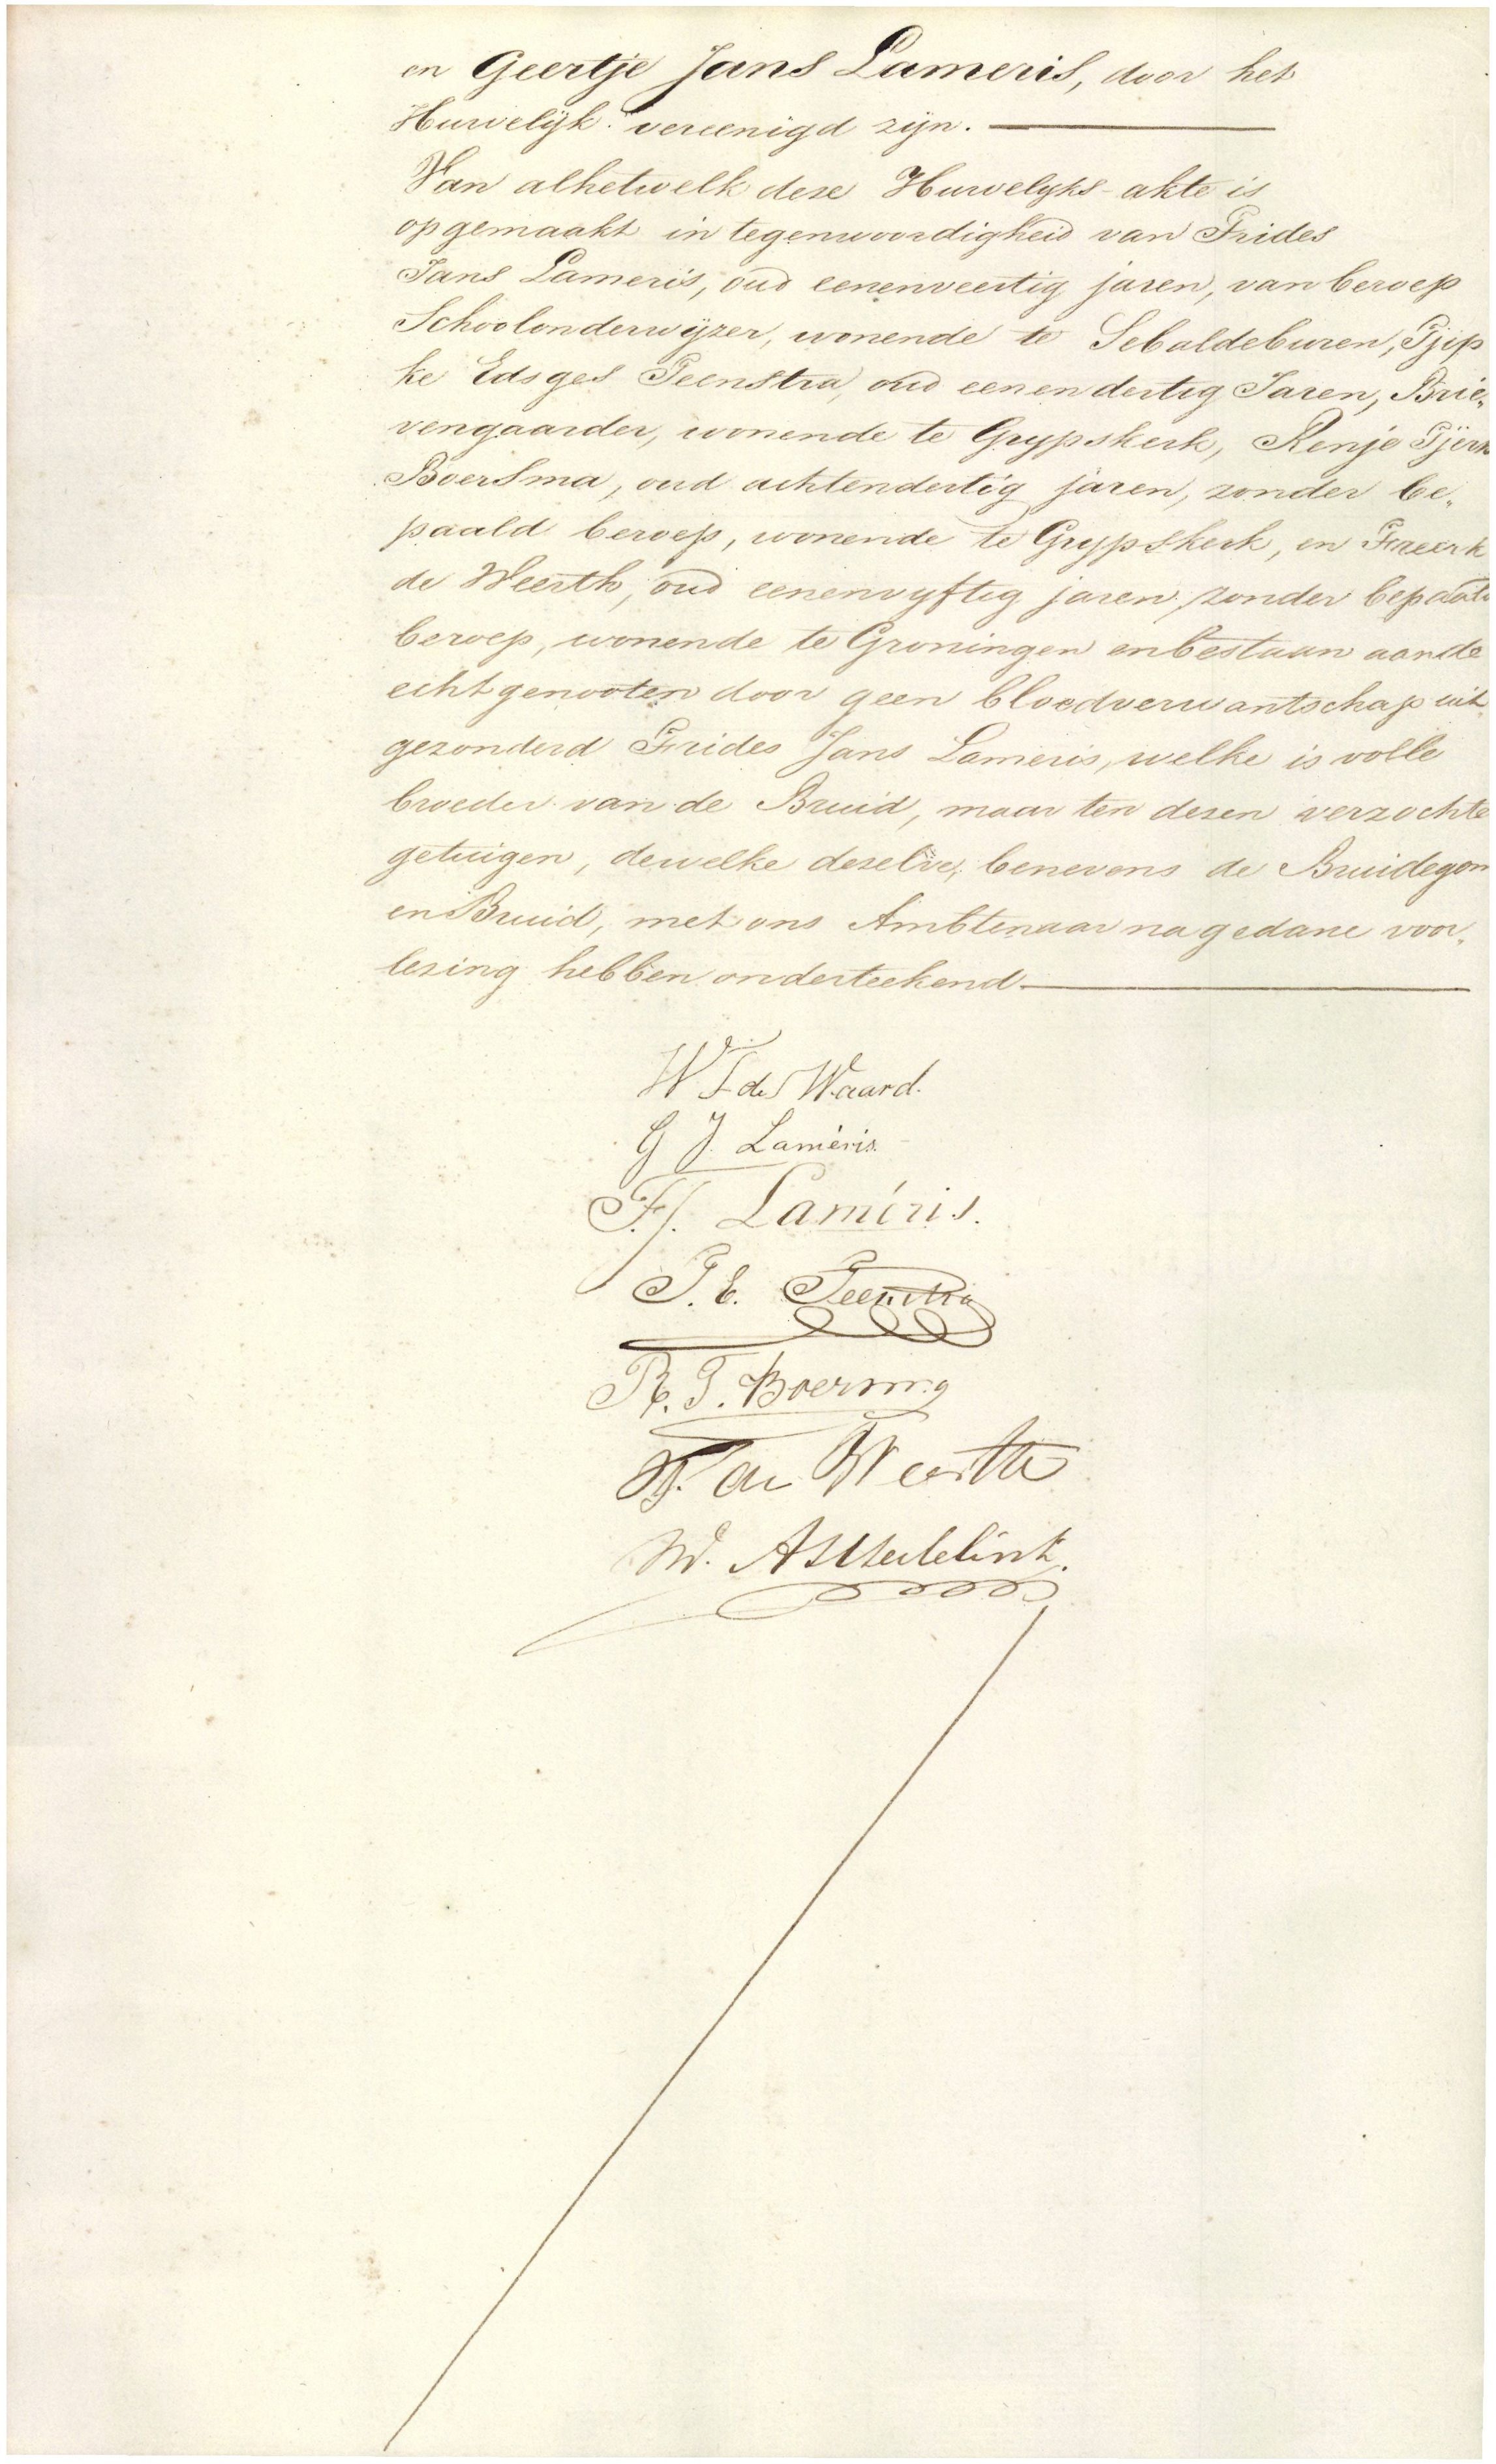 en Geertje Jans Lameris, door het
Huwelijk vereenigd zijn.
Van alhetwelk deze Huwelyks-akte is
opgemaakt in tegenwoordigheid van Frides
Jans Lameris, oud eenenveertig jaren, van beroep
Schoolonderwijzer, wonende te Sebaldeburen, Tjip
ke Edsges Teenstra, oud eenendertig Jaren, Brie„
vengaarder, wonende te Grypskerk, Renje Tjerk
Boersma, oud achtendertig jaren, zonder be„
paald beroep, wonende te Grypskerk, en Freerk
de Weerth, oud eenenvyftig jaren, zonder bepaald
beroep, wonende te Groningen en bestaan aan de
echtgenooten door geen bloedverwantschap uit
gezonderd Frides Jans Lameris, welke is volle
broeder van de Bruid, maar ten dezen verzochte
getuigen, dewelke dezelve, benevens de Bruidegom
en Bruid, met ons Ambtenaar na gedane voor„
lezing hebben onderteekend
W T de Waard.
G J Laméris.
F. J. Laméris.
T. E. Teenstra
R. T. Boersma
F. de Weerth
W.